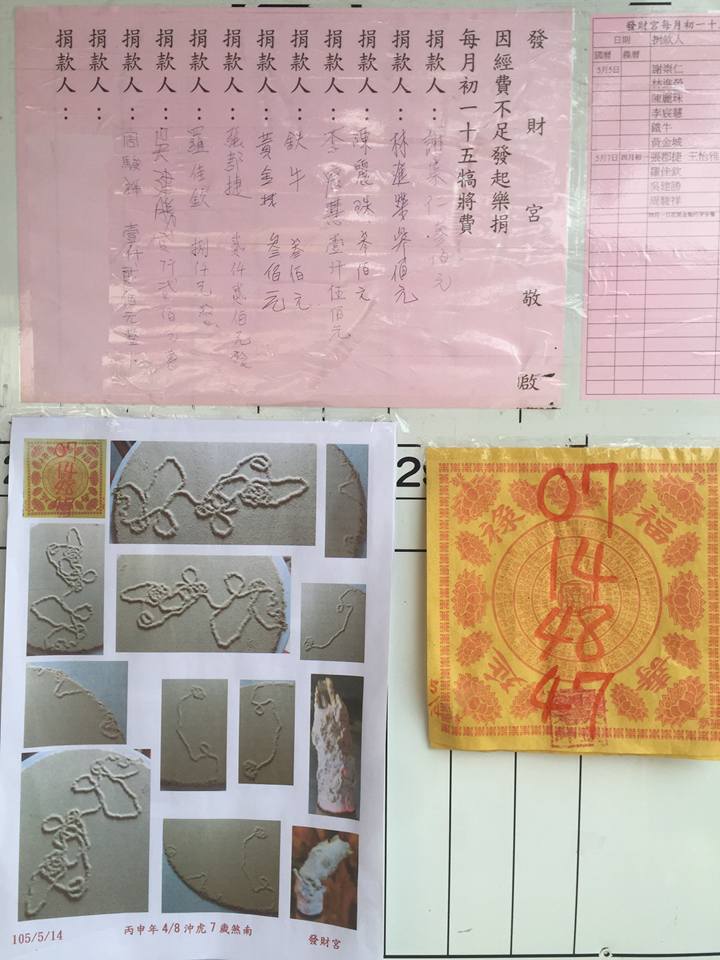 發財宮敬啟
因經費不足發起樂捐
每月初一十五犒將費
捐款人：謝崇仁 叁佰元
捐款人：林進榮 叁佰元
捐款人：陳麗珠 叁佰元
捐款人：李宸慧 壹仟伍佰元
捐款人：鉄牛 叁佰元
捐款人：黃金城 叁佰元
捐款人：張郡捷 貳仟貳佰元整
捐款人：羅佳欽 捌仟元整
捐款人：吳建勝
捐款人：周駿祥
捐款人：
捐款人：
發財宮每月初一十
日期 捐款人
國曆 農曆
5月5日 謝崇仁
林進榮
陳麗珠
李宸慧
鐵牛
黃金城
5月7日 四月初一 張郡捷 王怡雅
羅佳欽
吳建勝
周駿祥
07
14
48
47
105/5/14
丙申年 4/8 沖虎 7 歲煞南
發財宮
29
祿 福
延 壽
07
14
48
47
5/14